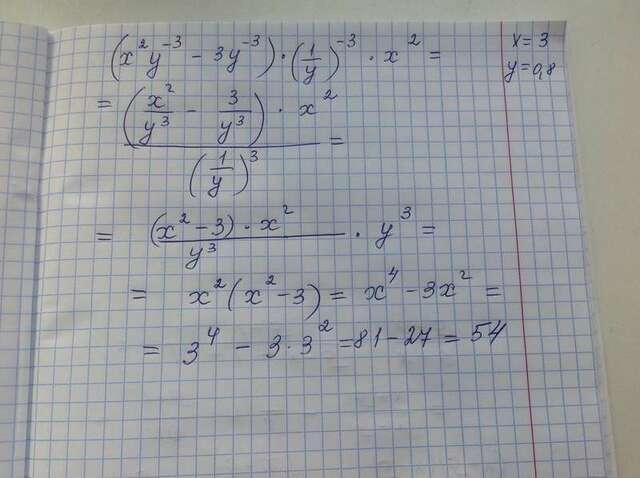 (x²y⁻³ - 3y⁻³) · (1/y)⁻³ · x² =
x = 3
y = 0,8
= ((x²/y³ - 3/y³) · x²) / (1/y)³ =
= ((x² - 3) · x²)/y³ · y³ =
= x²(x² - 3) = x⁴ - 3x² =
= 3⁴ - 3·3² = 81 - 27 = 54